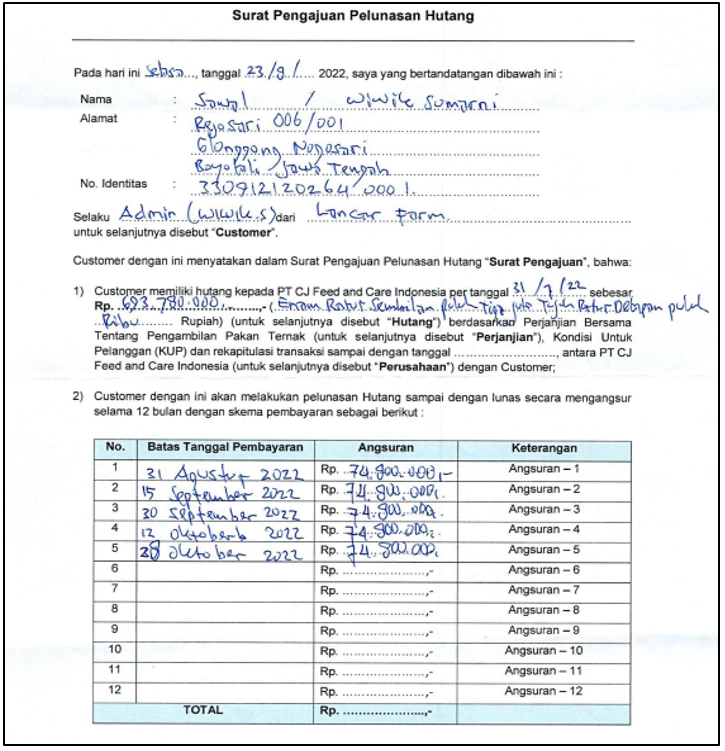 Surat Pengajuan Pelunasan Hutang
Pada hari ini Selasa..., tanggal 23./8./.... 2022, saya yang bertandatangan dibawah ini :
Nama : Sawal / Wiwik Sumarni
Alamat : Rejosari 006/001
Glonggong Nogosari
Boyolali / Jawa Tengah
No. Identitas : 330912120264 0001.
Selaku Admin (Wiwik.S) dari Lancar Farm
untuk selanjutnya disebut "Customer".
Customer dengan ini menyatakan dalam Surat Pengajuan Pelunasan Hutang "Surat Pengajuan", bahwa:
1) Customer memiliki hutang kepada PT CJ Feed and Care Indonesia per tanggal 31/7/22 sebesar
Rp. 693.780.000.-.........,- (Enam Ratus Sembilan puluh Tiga juta Tujuh Ratus Delapan puluh
Ribu......... Rupiah) (untuk selanjutnya disebut "Hutang") berdasarkan Perjanjian Bersama
Tentang Pengambilan Pakan Ternak (untuk selanjutnya disebut "Perjanjian"), Kondisi Untuk
Pelanggan (KUP) dan rekapitulasi transaksi sampai dengan tanggal ........................, antara PT CJ
Feed and Care Indonesia (untuk selanjutnya disebut "Perusahaan") dengan Customer;
2) Customer dengan ini akan melakukan pelunasan Hutang sampai dengan lunas secara mengangsur
selama 12 bulan dengan skema pembayaran sebagai berikut :
No. Batas Tanggal Pembayaran Angsuran Keterangan
1 31 Agustus 2022 Rp. 74.800.000,- Angsuran – 1
2 15 September 2022 Rp. 74.800.000,- Angsuran – 2
3 30 September 2022 Rp. 74.800.000,- Angsuran – 3
4 12 Oktober 2022 Rp. 74.800.000,- Angsuran – 4
5 28 Oktober 2022 Rp. 74.800.000,- Angsuran – 5
6 Rp. .....................,- Angsuran – 6
7 Rp. .....................,- Angsuran – 7
8 Rp. .....................,- Angsuran – 8
9 Rp. .....................,- Angsuran – 9
10 Rp. .....................,- Angsuran – 10
11 Rp. .....................,- Angsuran – 11
12 Rp. .....................,- Angsuran – 12
TOTAL Rp. .....................,-